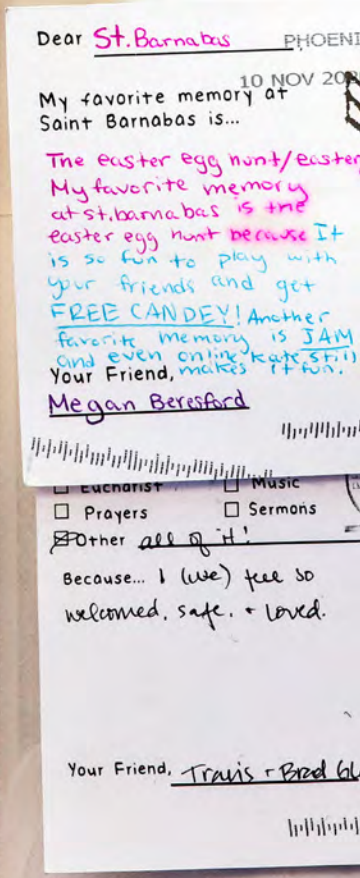 Dear St. Barnabas
PHOENI
10 NOV 20
My favorite memory at
Saint Barnabas is...
The easter egg hunt/easter
My favorite memory
at st.barnabas is the
easter egg hunt because It
is so fun to play with
your friends and get
FREE CANDEY! Another
favorite memory is JAM
and even online kate still
makes it fun.
Your Friend,
Megan Beresford
Eucharist Music
Prayers Sermons
Other all of it!
Because... I (we) feel so
welcomed, safe, + loved.
Your Friend, Travis + Brad